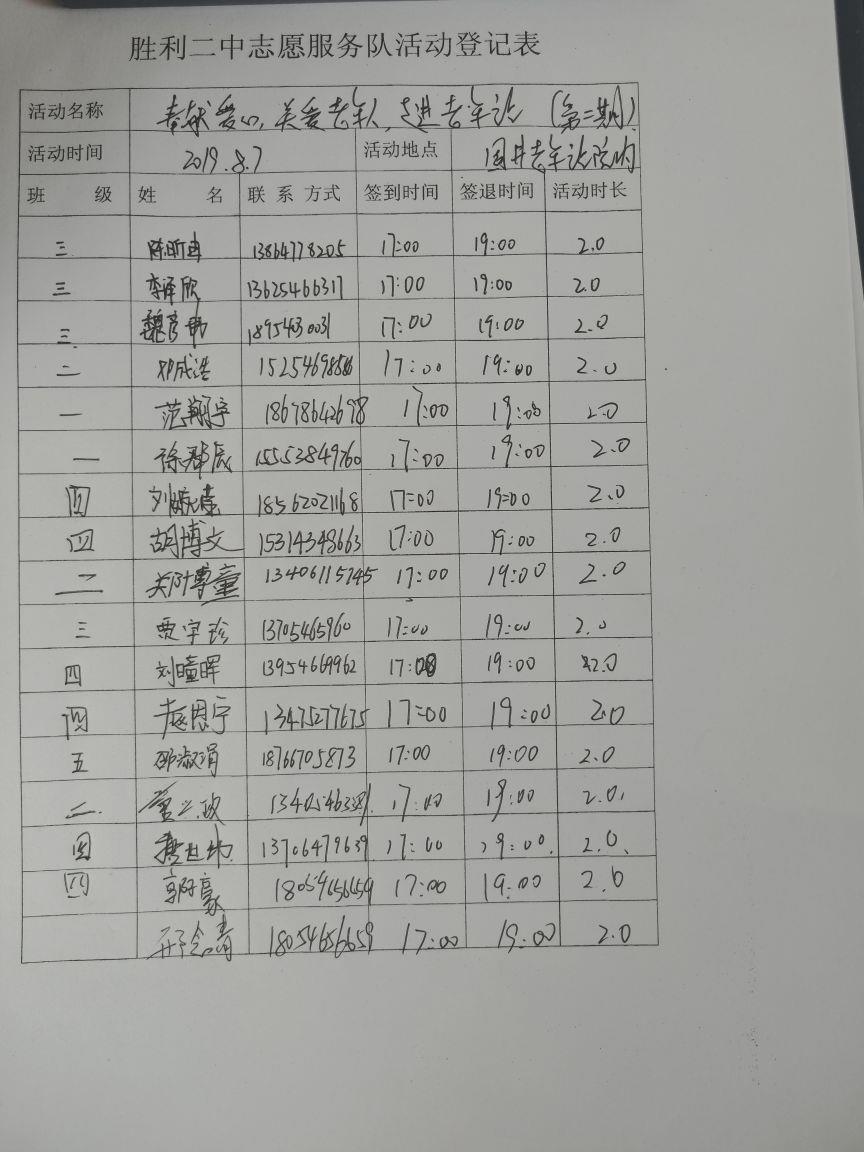 胜利二中志愿服务队活动登记表
活动名称 奉献爱心,关爱老人,走进老年 (第二期)
活动时间 2019.8.7 活动地点 国井老年 院内
班 级 姓 名 联 系 方式 签到时间 签退时间 活动时长
三 陈昕 13864778205 17:00 19:00 2.0
三 李泽欣 13625466317 17:00 19:00 2.0
三 魏彦 17:00 19:00 2.0
二 邓成浩 17:00 19:00 2.0
一 范翔宇 18678642698 17:00 19:00 2.0
一 徐 辰 15553849760 17:00 19:00 2.0
四 刘 18562021168 17=00 19=00 2.0
四 胡博文 15314348663 17:00 19:00 2.0
二 关 博童 13406115745 17:00 19:00 2.0
三 贾宇珍 13705465960 17:00 19:00 2.0
四 刘瞳晖 13954669962 17:00 19:00 2.0
四 赵恩宁 13475277675 17=00 19=00 2.0
五 邵淑涓 18766705873 17:00 19:00 2.0
二 17:00 19:00 2.0
四 13706479639 17:00 19:00. 2.0.
四 郭 豪 18054656659 17:00 19:00 2.0
邢念青 18054656659 17:00 19:00 2.0